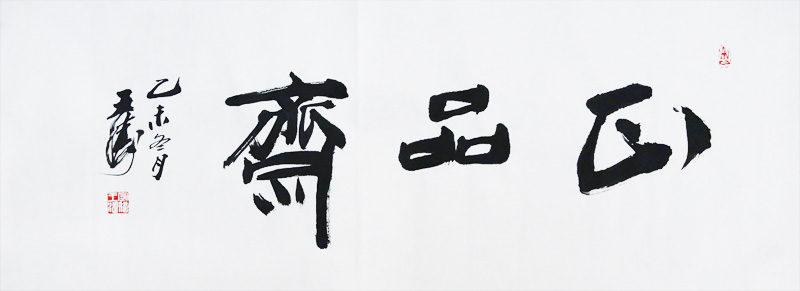 正品齋
乙未冬月